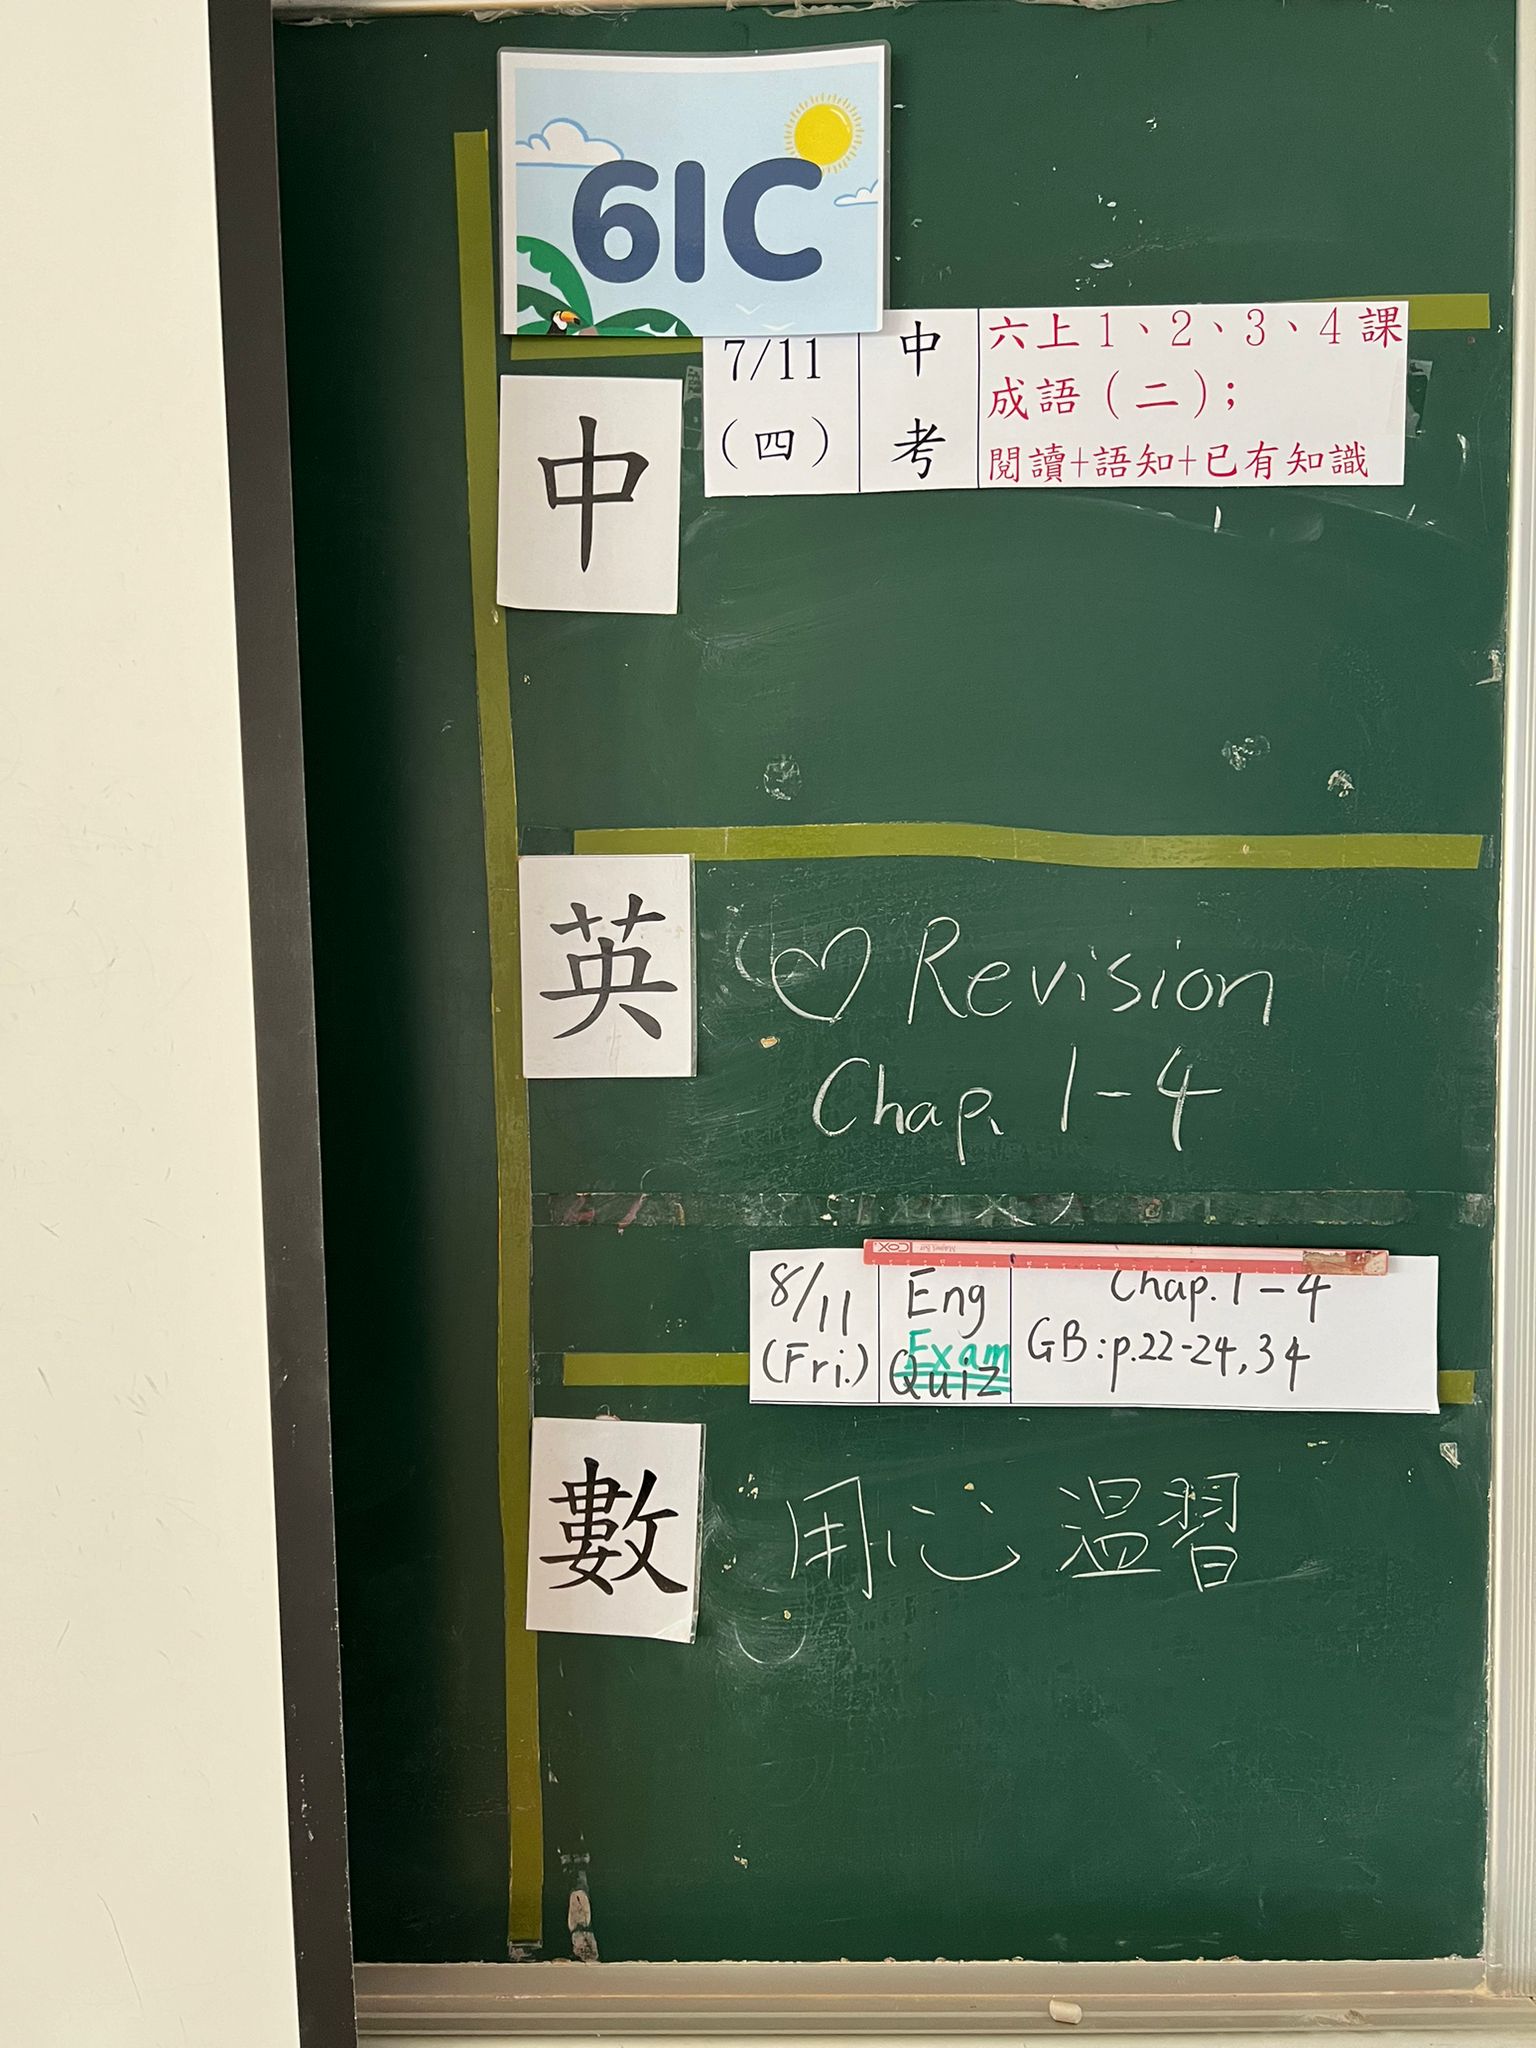 61C
7/11
(四)
中
考
六上1、2、3、4課
成語（二）；
閱讀+語知+已有知識
中
英
♡ Revision
Chap. 1-4
COX
8/11
(Fri.)
Eng
Exam
Quiz
Chap. 1-4
GB: p.22-24, 34
數
用心温習